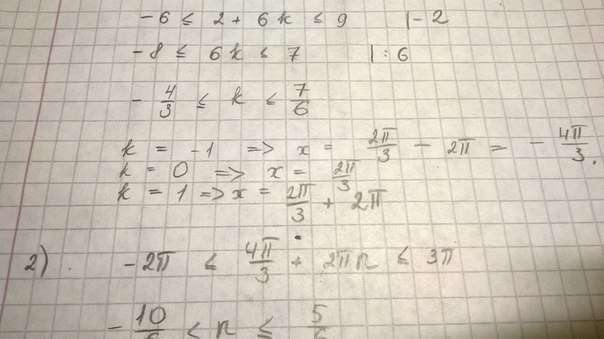 -6 ≤ 2 + 6k ≤ 9 |-2
-8 ≤ 6k ≤ 7 |:6
-4/3 ≤ k ≤ 7/6
k = -1 => x = 2π/3 - 2π = -4π/3.
k = 0 => x = 2π/3
k = 1 => x = 2π/3 + 2π
2) -2π ≤ 4π/3 + 2πn ≤ 3π
-10/6 ≤ n ≤ 5/6